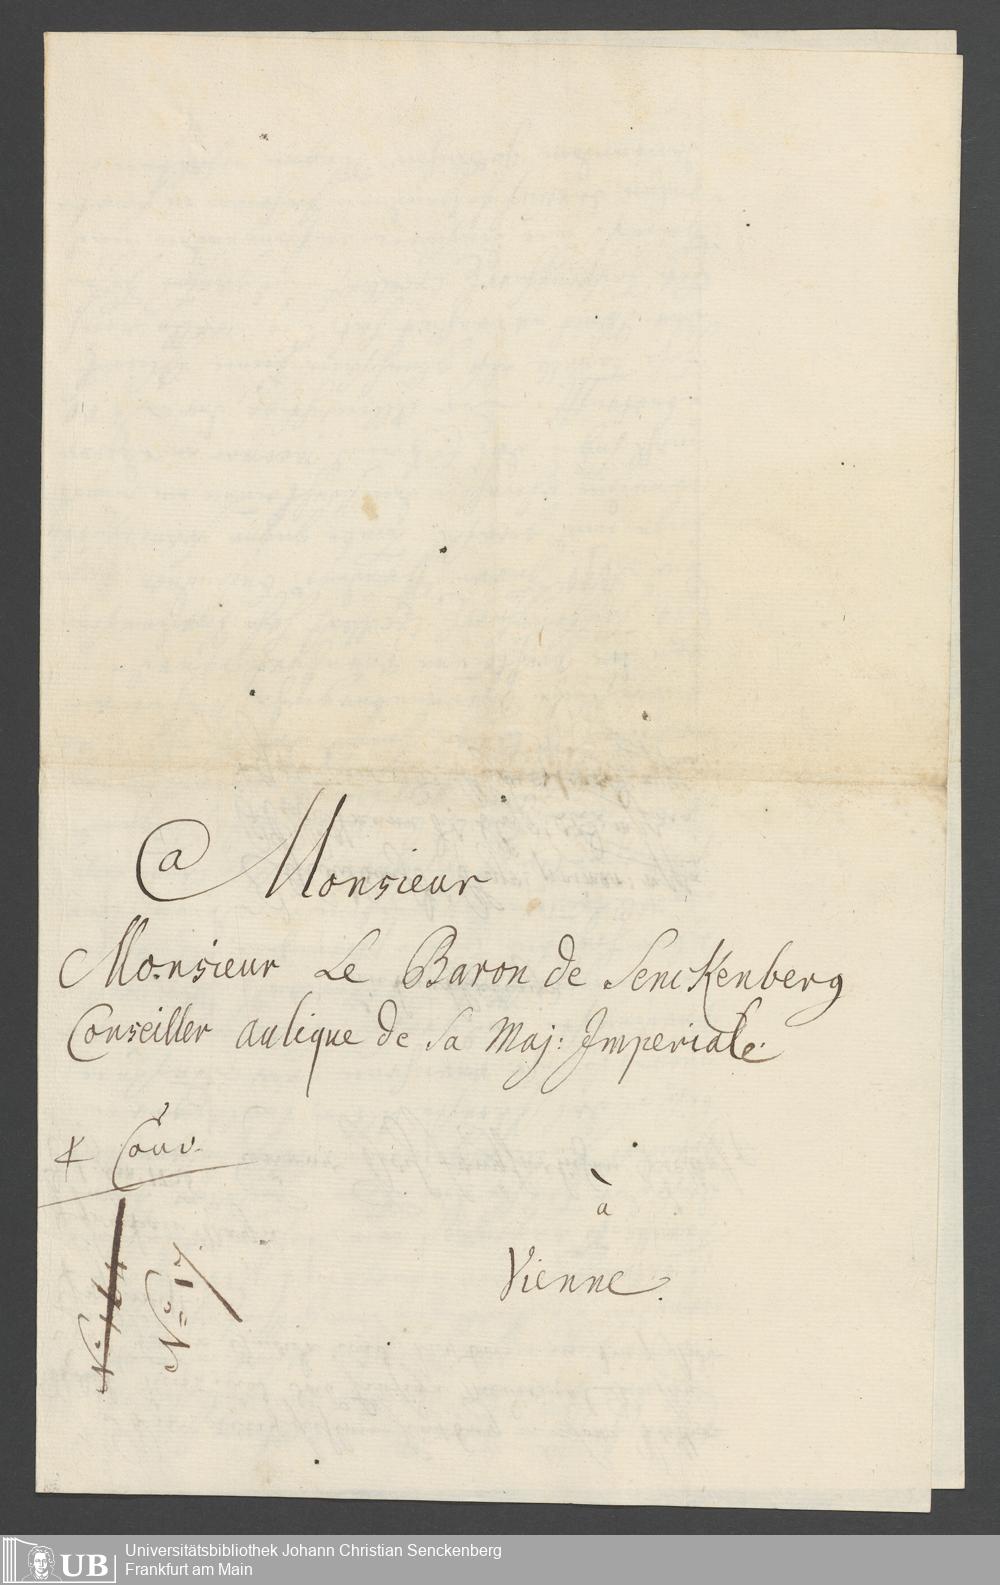 a Monsieur
Monsieur Le Baron de Senckenberg
Conseiller aulique de sa Maj: Imperiale.
à
Vienne.
Couv.
No 17
UB
Universitätsbibliothek Johann Christian Senckenberg
Frankfurt am Main